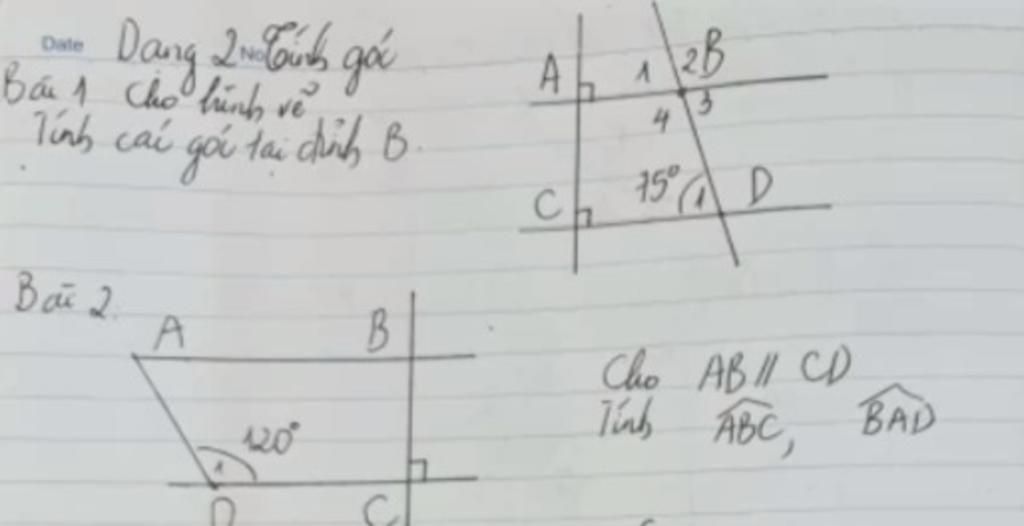 Date Dạng 2 No Tính góc
Bài 1 Cho hình vẽ
Tính các góc tại đỉnh B.
A 1 2 B
4 3
C 75° 1 D
Bài 2.
A B
120°
1
D C
Cho AB // CD
Tính ABC, BAD